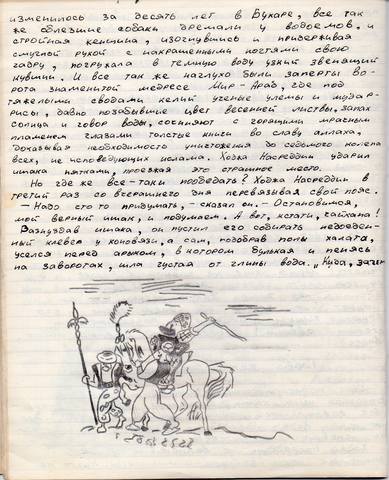 изменилось за десять лет в Бухаре, все так
же облезшие собаки дремали у водоемов, и
стройная женщина, изогнувшись и придерживая
смуглой рукой с накрашенными ногтями свою
чадру, погружала в темную воду узкий звенящий
кувшин. И все так же наглухо были заперты во-
рота знаменитой медресе Мир-Араб, где под
тяжелыми сводами келий ученые улемы и мудар-
рисы, давно позабывшие цвет весенней листвы, запах
солнца и говор воды, сочиняют с горящими мрачным
пламенем глазами толстые книги во славу аллаха,
доказывая необходимость уничтожения до седьмого колена
всех, не исповедующих ислама. Ходжа Насреддин ударил
ишака пятками, проезжая это страшное место.
Но где же все-таки пообедать? Ходжа Насреддин в
третий раз со вчерашнего дня перевязывал свой пояс.
- Надо что то придумать, - сказал он. - Остановимся,
мой верный ишак, и подумаем. А вот, кстати, чайхана!
Разнуздав ишака, он пустил его собирать недоеден-
ный клевер у коновязи, а сам, подобрав полы халата,
уселся перед арыком, в котором булькая и пенясь
на заворотах, шла густая от глины вода. "Куда, зачем